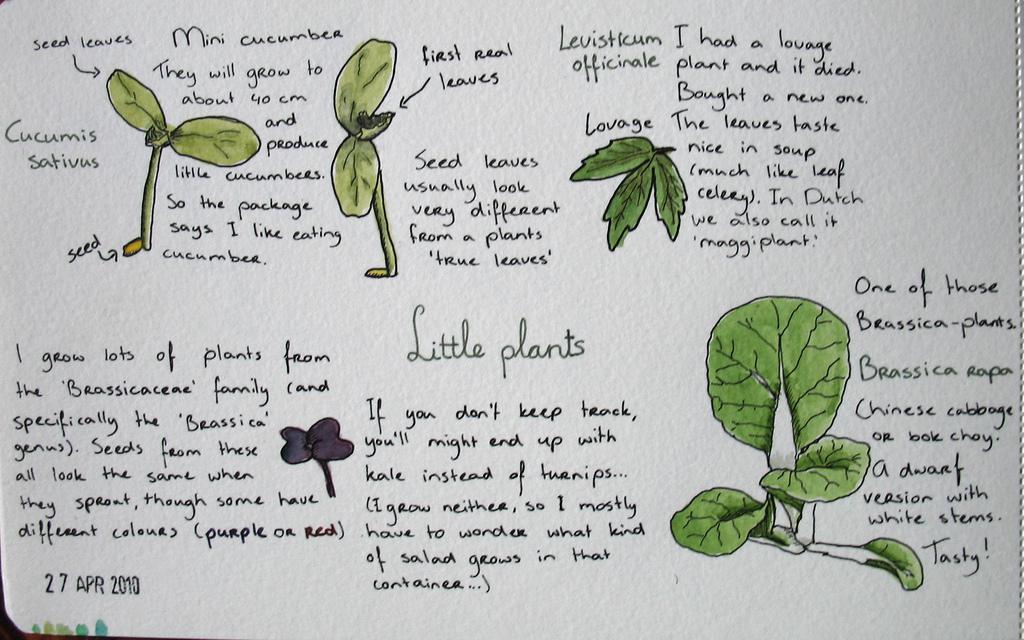 seed leaves
Mini cucumber
They will grow to
about 40 cm
and
produce
little cucumbers.
So the package
says. I like eating
cucumber.
Cucumis
sativus
seed
first real
leaves
Seed leaves
usually look
very different
from a plants
'true leaves'
Levisticum
officinale
Lovage
I had a lovage
plant and it died.
Bought a new one.
The leaves taste
nice in soup
(much like leaf
celery). In Dutch
we also call it
'maggiplant'.
Little plants
I grow lots of plants from
the 'Brassicaceae' family (and
specifically the 'Brassica'
genus). Seeds from these
all look the same when
they sprout, though some have
different colours (purple or red)
If you don't keep track,
you'll might end up with
kale instead of turnips...
(I grow neither, so I mostly
have to wonder what kind
of salad grows in that
container...)
One of those
Brassica-plants.
Brassica rapa
Chinese cabbage
or bok choy.
A dwarf
version with
white stems.
Tasty!
27 APR 2010